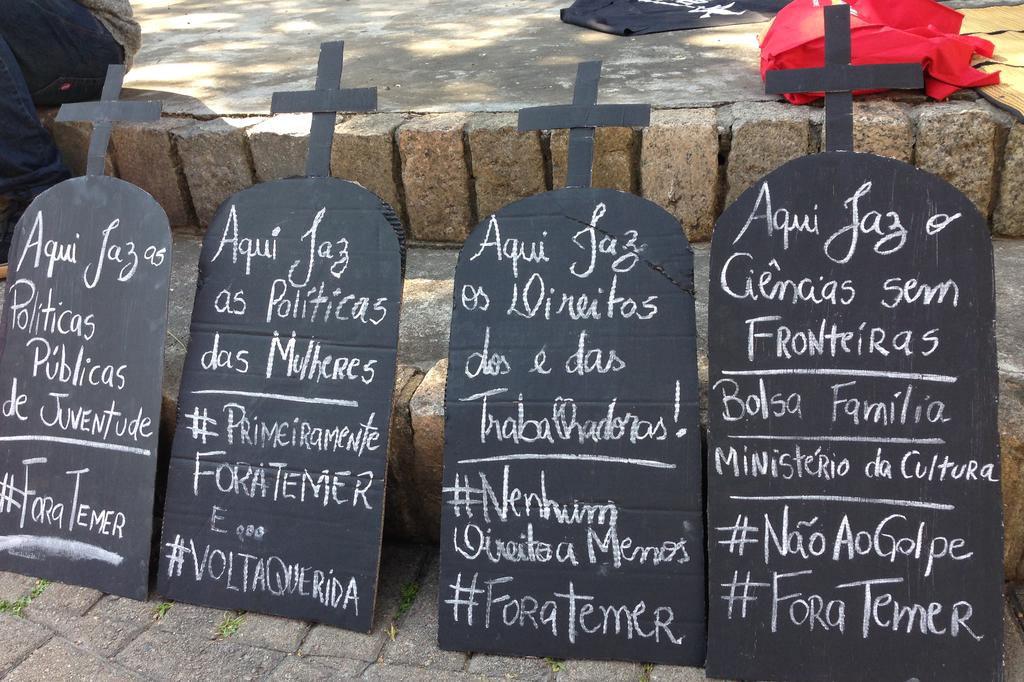 Aqui Jaz as
Políticas
Públicas
de JUVENTUDE
#FORA TEMER
Aqui Jaz
as Políticas
das Mulheres
#PRIMEIRAMENTE
FORATEMER
E...
#VOLTAQUERIDA
Aqui Jaz
os Direitos
dos e das
Trabalhadoras!
#Nenhum
Direito a Menos
#FORATEMER
Aqui Jaz o
Ciências sem
FRONTEIRAS
Bolsa Família
MINISTÉRIO da Cultura
#NÃOAoGolpe
#FORA TEMER